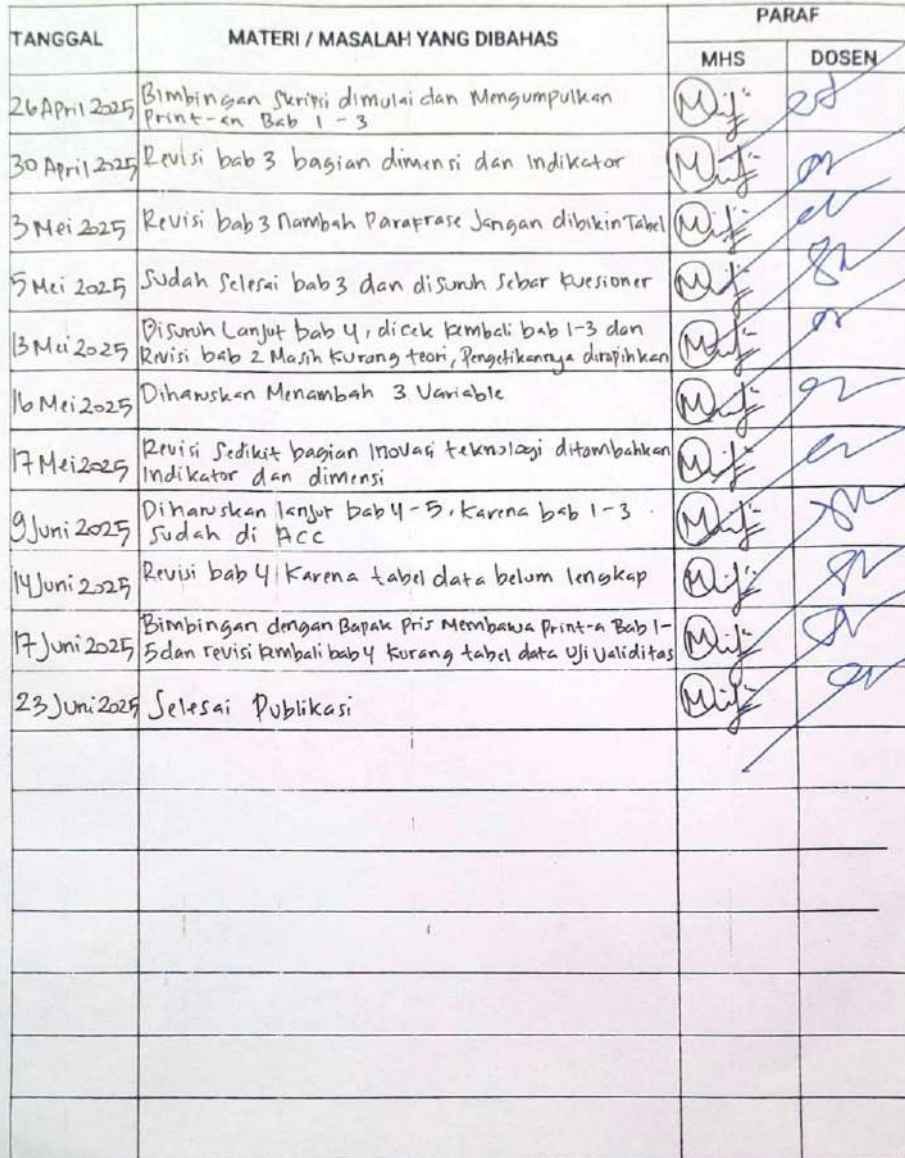 PARAF
TANGGAL MATERI / MASALAH YANG DIBAHAS
MHS DOSEN
26 April 2025 Bimbingan Skripsi dimulai dan Mengumpulkan
Print-an Bab 1 - 3
30 April 2025 Revisi bab 3 bagian dimensi dan Indikator
3 Mei 2025 Revisi bab 3 Nambah Parafrase Jangan dibikin Tabel
5 Mei 2025 Sudah Selesai bab 3 dan disuruh Sebar Kuesioner
13 Mei 2025 Disuruh Lanjut bab 4, dicek kembali bab 1-3 dan
Revisi bab 2 Masih kurang teori, Pengetikannya dirapihkan
16 Mei 2025 Diharuskan Menambah 3 Variable
17 Mei 2025 Revisi Sedikit bagian Inovasi teknologi ditambahkan
Indikator dan dimensi
9 Juni 2025 Diharuskan lanjut bab 4-5. Karena bab 1-3
Sudah di ACC
14 Juni 2025 Revisi bab 4 Karena tabel data belum lengkap
17 Juni 2025 Bimbingan dengan Bapak Pris Membawa Print-a Bab 1-
5 dan revisi kembali bab 4 kurang tabel data Uji Validitas
23 Juni 2025 Selesai Publikasi